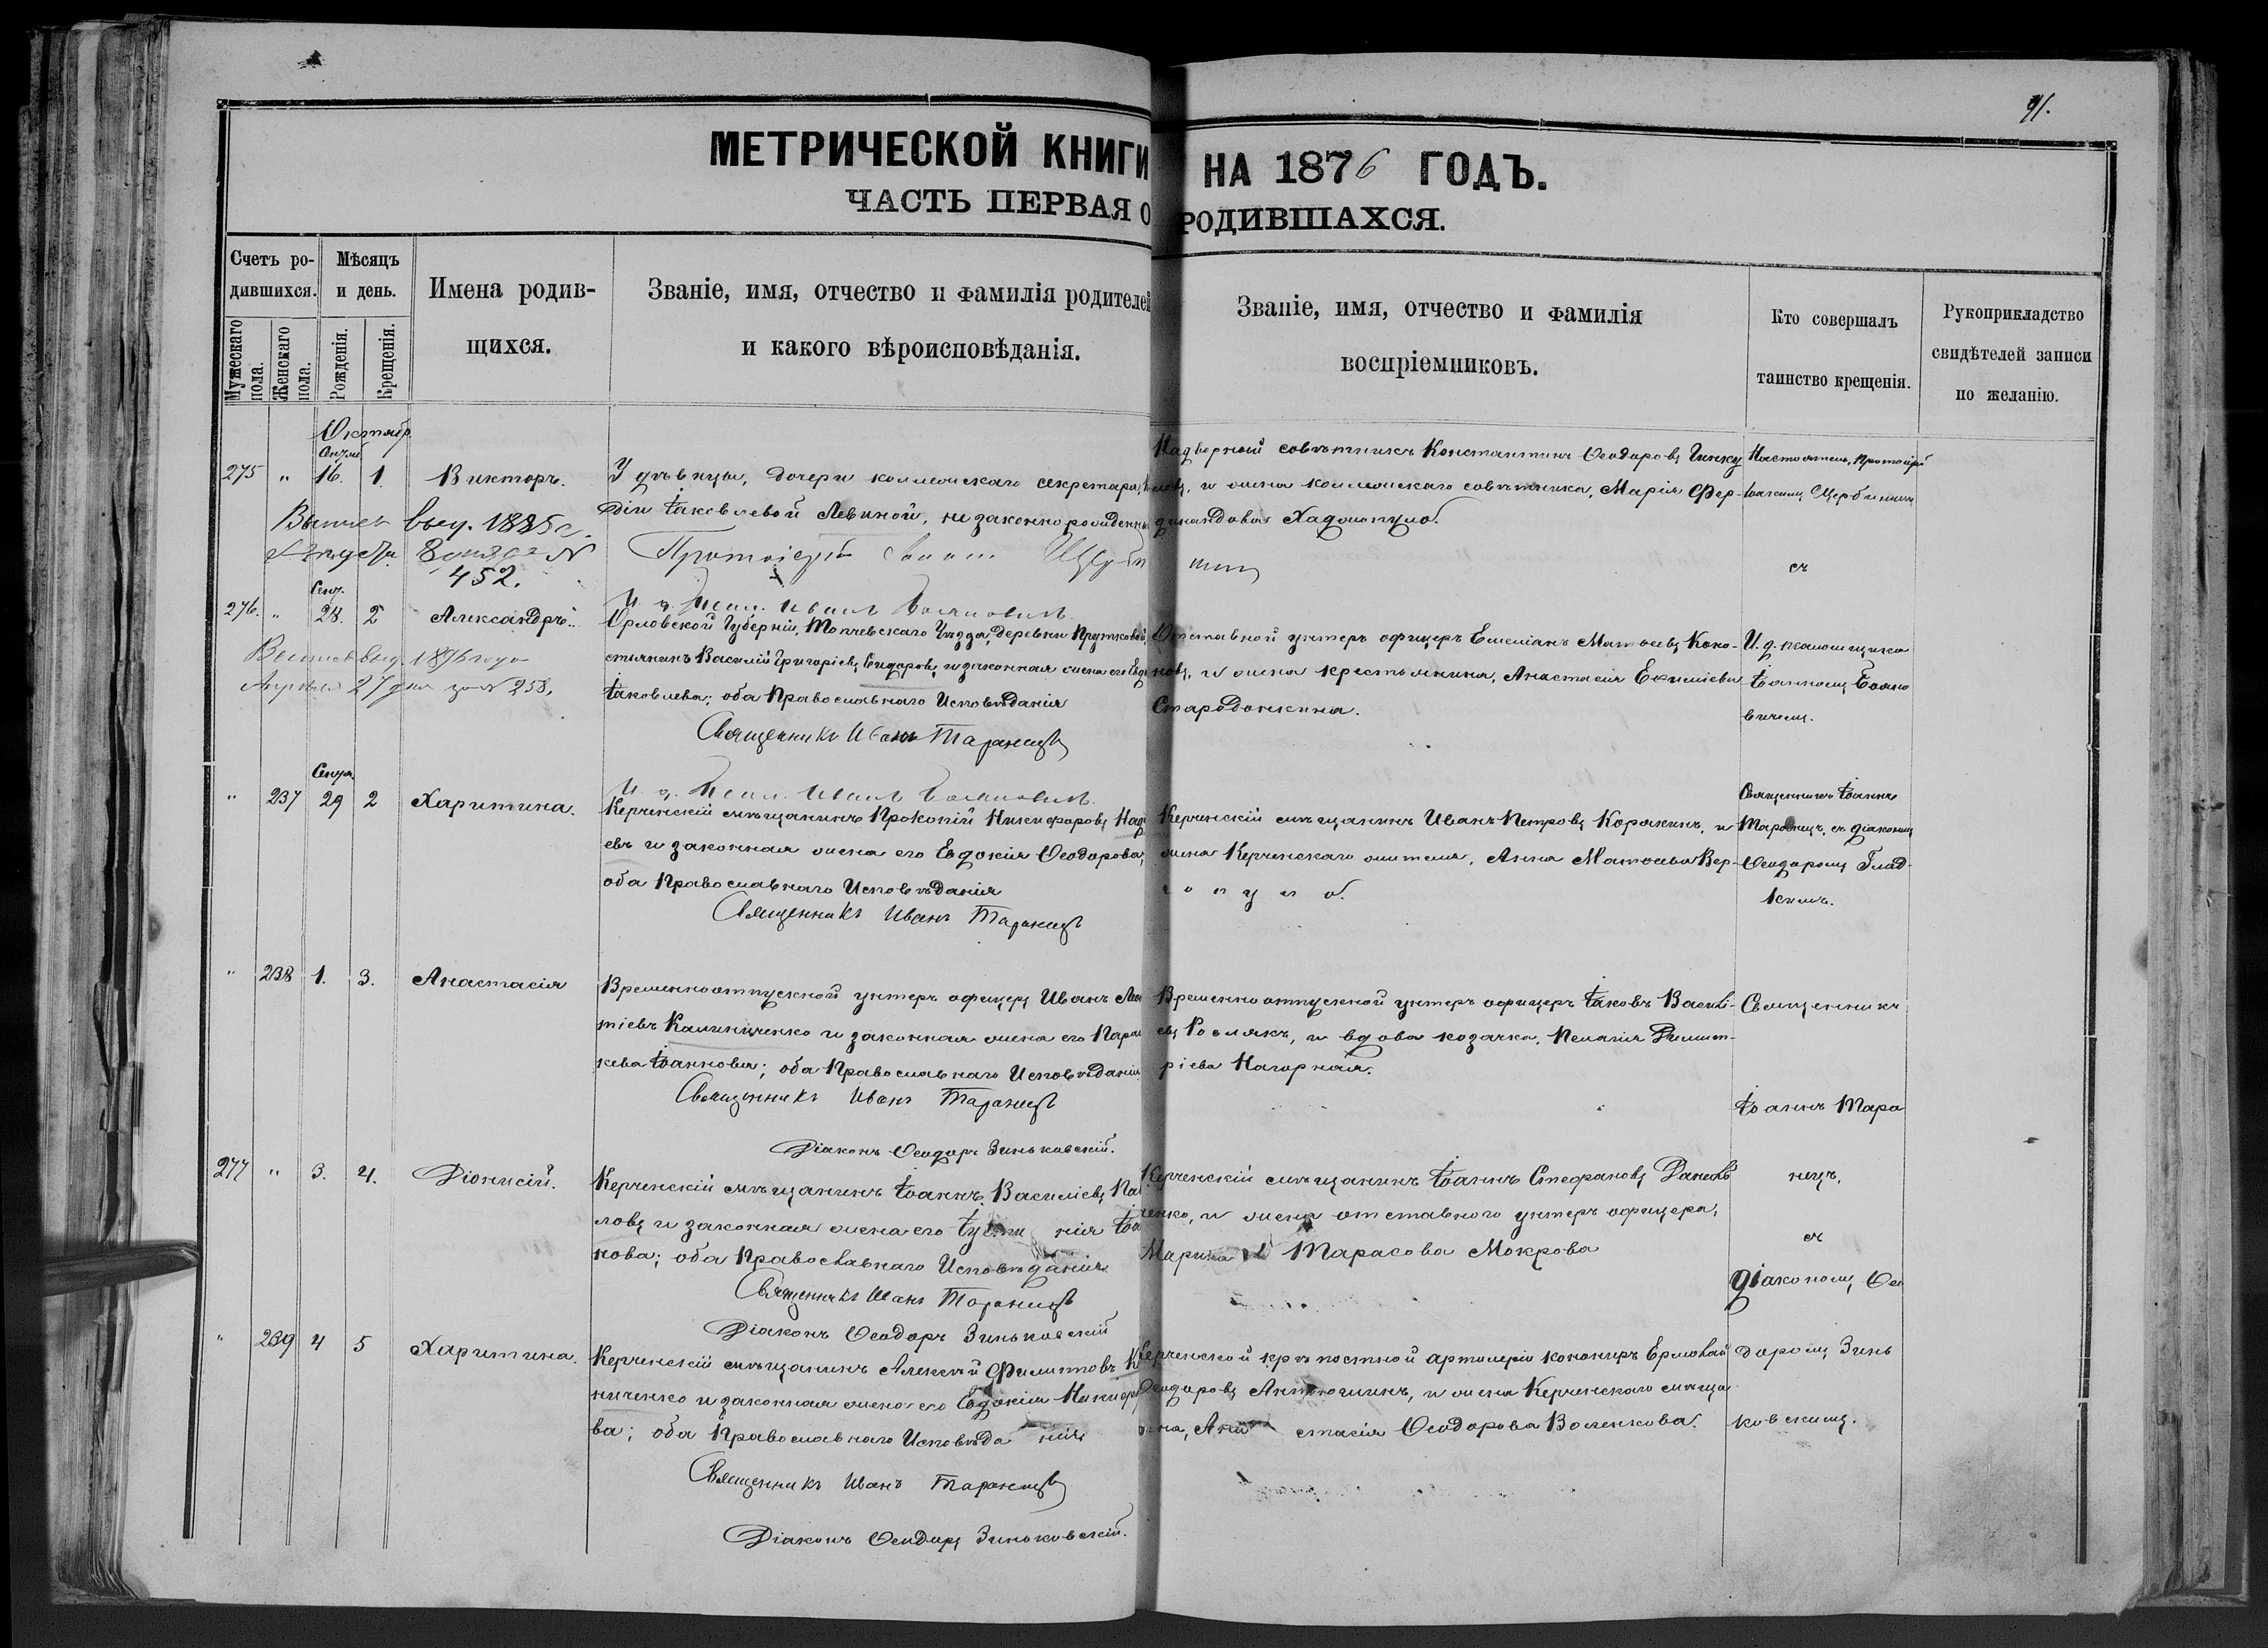 91.
МЕТРИЧЕСКОЙ КНИГИ НА 1876 ГОДЪ.
ЧАСТЬ ПЕРВАЯ О РОДИВШАХСЯ.
Счетъ ро-
дившихся.
Мужескаго пола.
Женскаго пола.
Мѣсяцъ
и день.
Рожденія.
Крещенія.
Имена родив-
щихся.
Званіе, имя, отчество и фамилія родителей
и какого вѣроисповѣданія.
Званіе, имя, отчество и фамилія
воспріемниковъ.
Кто совершалъ
таинство крещенія.
Рукоприкладство
свидѣтелей записи
по желанію.
Октябр.
275 " 16. 1. Викторъ.
У дѣвицы, дочери коллежскаго секретаря,
діи Іаковлевой Левиной, незаконнорожденны
Надворный совѣтникъ Константинъ Ѳеодоровъ
и жена коллежскаго совѣтника, Марія Фер-
динандова Хаджопуло.
Настоятель, Протоіерей
Щербинин
съ
выд. 1885 г.
452.
Протоіерей Щербинин
И. д. Псал. Иванъ Бояновичъ.
Сент.
276. " 28. 2 Александръ.
выд. 1896 года
Апрѣля 27 дня за № 258.
Орловской Губерніи, Уѣзда, деревни Прутковой,
стьянинъ Василій Григоріевъ Сидоровъ и законная жена его Евд
Іаковлева; оба Православнаго Исповѣданія
Священникъ Иванъ Таранецъ
Отставной унтеръ офицеръ Емеліанъ Матѳеевъ Коно-
новъ, и жена крестьянина, Анастасія
Стародонкина.
И. д. псаломщика
Іоанномъ Бояно
вичемъ.
И. д. Псал. Иванъ Бояновичъ.
Сент.
" 237 29 2 Харитина.
Керченскій мѣщанинъ Прокопій Никифоровъ
евъ и законная жена его Евдокія Ѳеодорова,
оба Православнаго Исповѣданія
Священникъ Иванъ Таранецъ
Керченскій мѣщанинъ Иванъ Петровъ Корякинъ, и
жена Керченскаго жителя, Анна Матѳеева Вер-
гопуло.
Священникъ Іоаннъ
Таранецъ, съ діакономъ
Ѳеодоромъ Глад-
кимъ.
" 238 1. 3. Анастасія
Временноотпускной унтеръ офицеръ Иванъ
тіевъ Калиниченко и законная жена его Парас
кева Іоаннова; оба Православнаго Исповѣданія
Священникъ Иванъ Таранецъ
Діаконъ Ѳеодоръ Зиньковскій.
Временно отпускной унтеръ офицеръ Іаковъ Василі-
евъ Рослякъ, и вдова козачка, Пелагія Димит-
ріева Нагорная.
Священникъ
Іоаннъ Тара
277 " 3. 4. Діонисій.
Керченскій мѣщанинъ Іоаннъ Василіевъ Пав
ловъ и законная жена его Іусти нія Іоа
нова; оба Православнаго Исповѣданія
Священникъ Иванъ Таранецъ
Діаконъ Ѳеодоръ Зиньковскій
Керченскій мѣщанинъ Іоаннъ Стефановъ Данил
ченко, и жена отставнаго унтеръ офицера,
Марина Тарасова Мокрова
нецъ,
съ
діакономъ Ѳео
" 239 4 5 Харитина.
Керченскій мѣщанинъ Алексѣй Филиповъ К
ниченко и законная жена его Евдокія Никифо
ва; оба Православнаго Исповѣда нія
Священникъ Иванъ Таранецъ
Діаконъ Ѳеодоръ Зиньковскій.
Керченской крѣпостной артилеріи канониръ Ермолай
Ѳеодоровъ Антюшинъ, и жена Керченскаго мѣща
нина, Ана стасія Ѳеодорова Воленкова.
доромъ Зинь
ковскимъ.